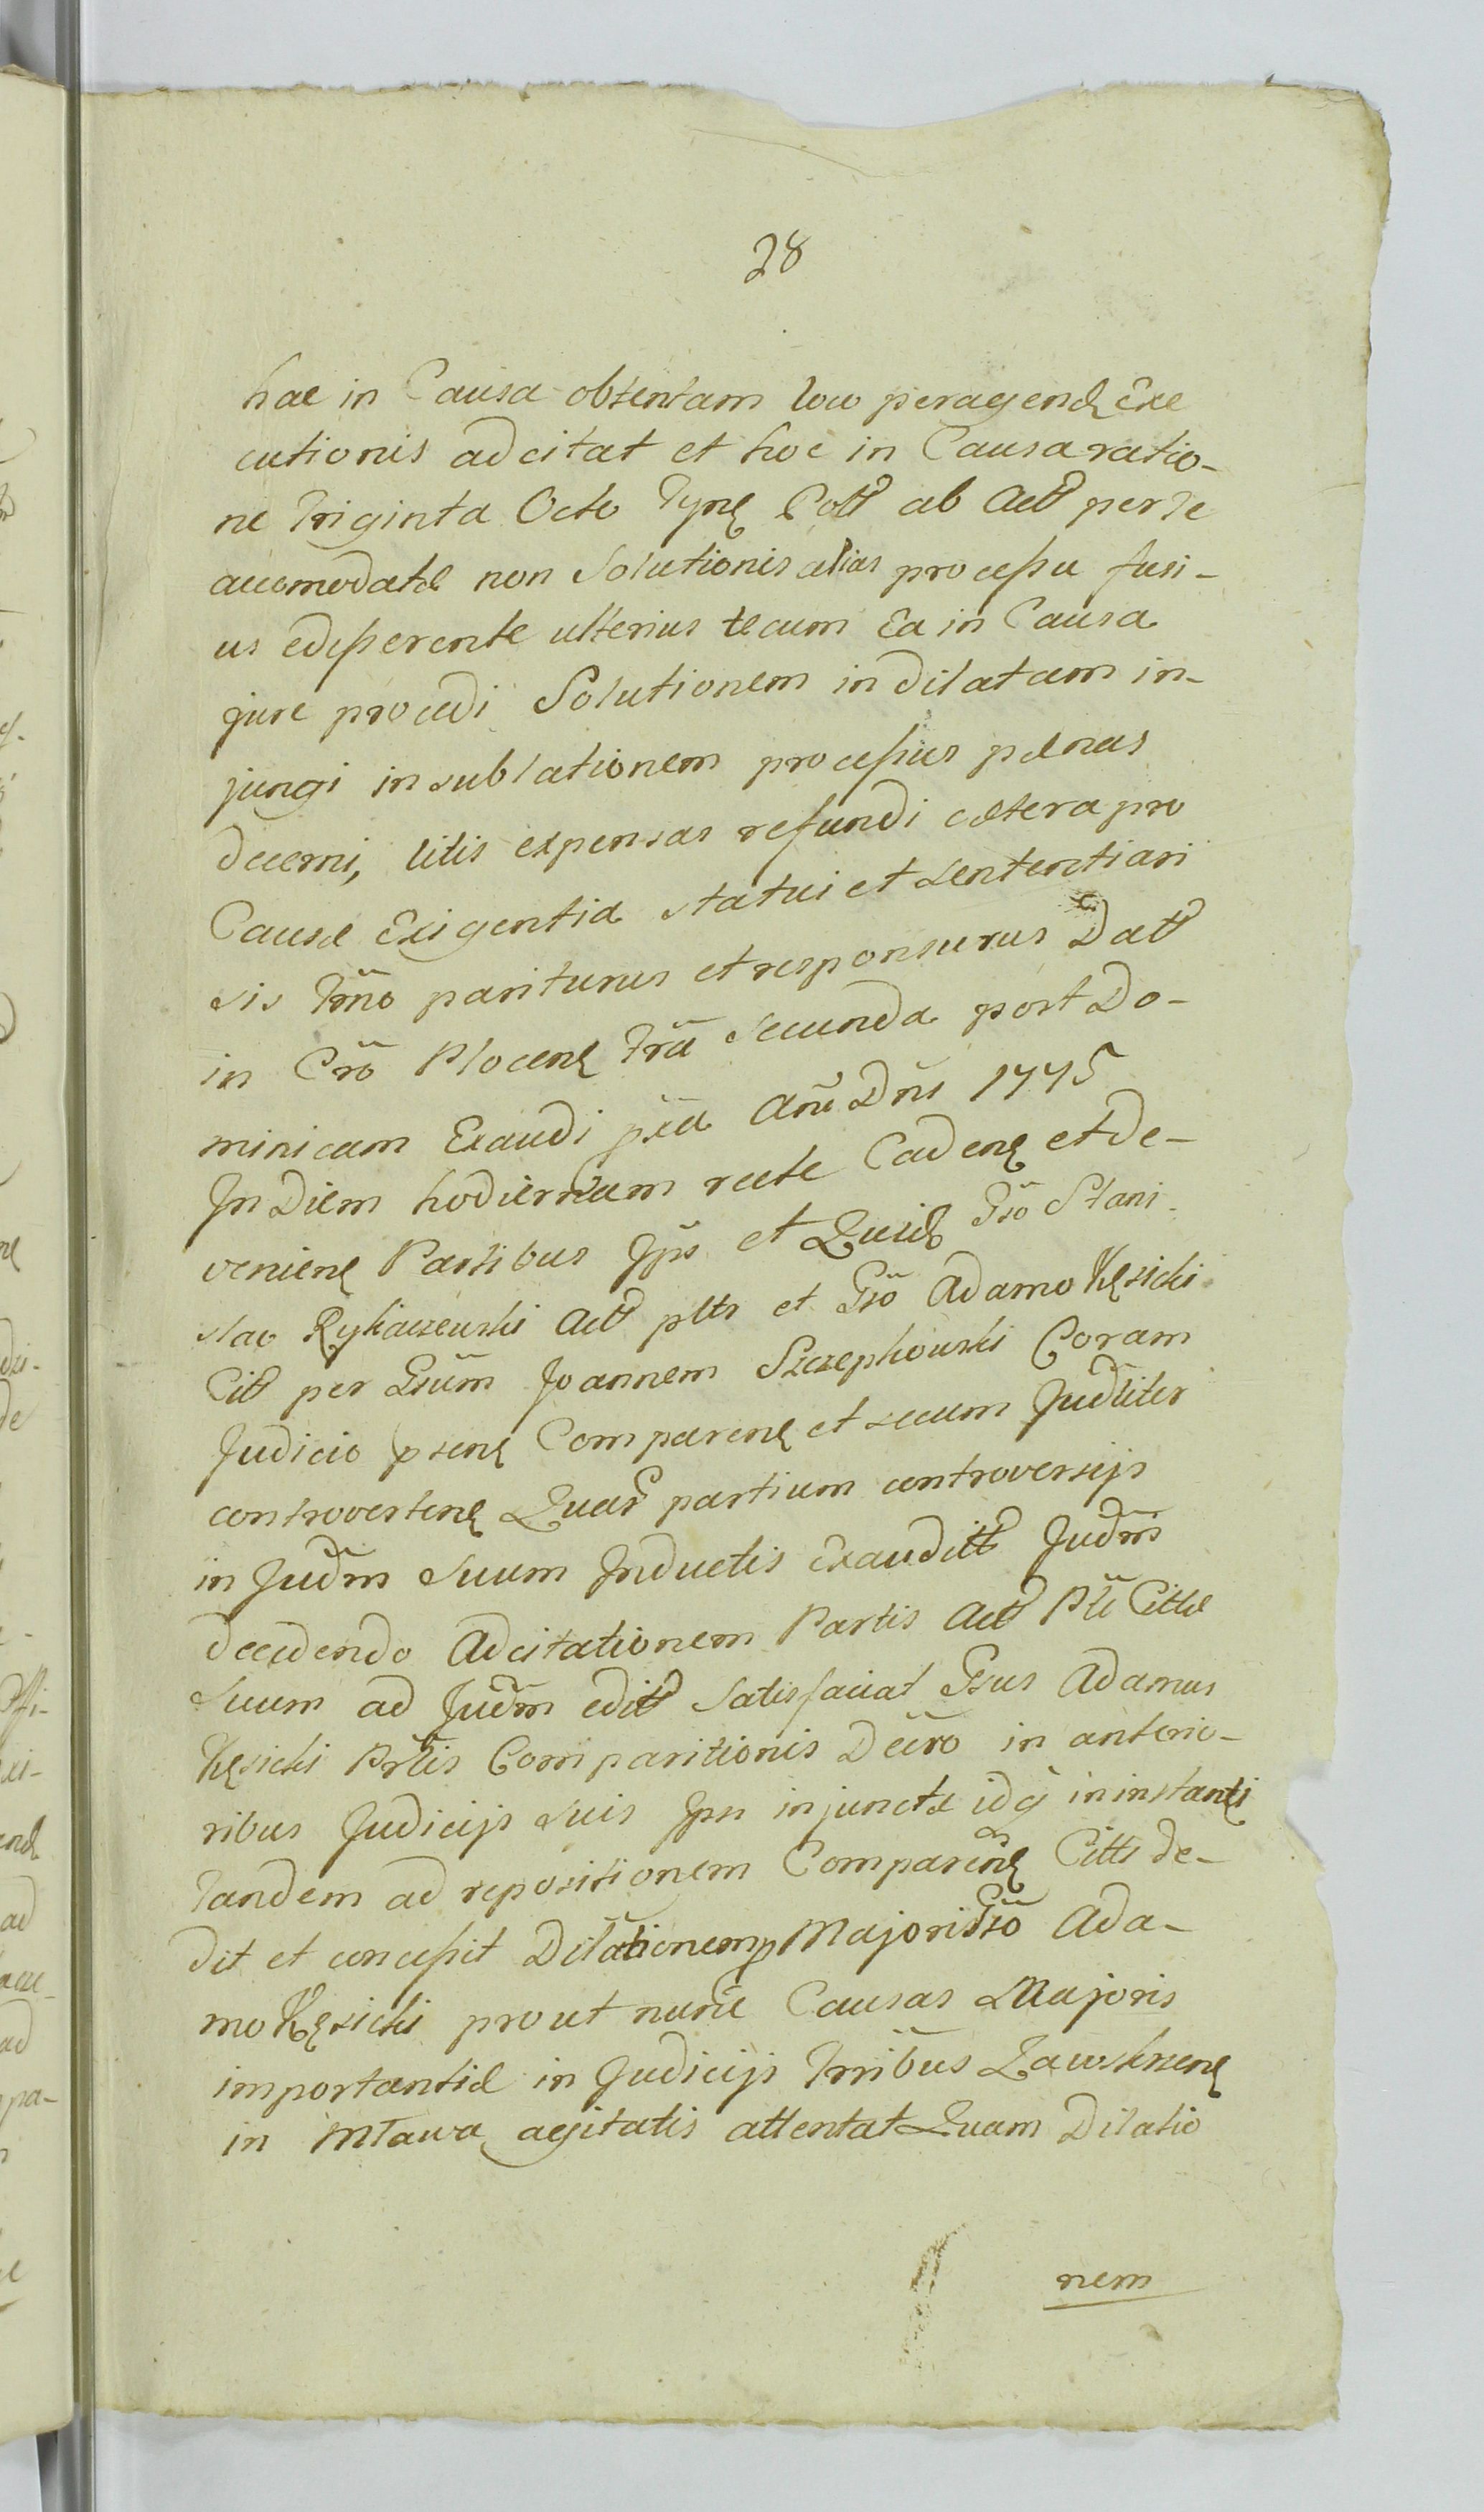 28
hac in Causa obtentam loco peragendę Exe
cutionis adcitat et hoc in Causa ratio-
ne Triginta Octo Tynę Poll ab Act per Te
accomodatæ non Solutionis alias processu fusi-
us edisserente ulterius tecum Ea in Causa
jure procedi Solutionem indilatam in-
jungi in sublationem processus pænas
decerni, litis expensas refundi cætera pro
Causæ Exigentia statui et sententiari
sis Trno pariturus et responsurus Datt
in Cro Plocenę Fria Secunda post Do-
minicam Exaudi pxa Anŭ Dni 1775
In Diem hodiernam recte Cadenę et de-
venienę Partibus Ipis et Quidę Gso Stani-
slao Rykaczewski Act plts et Gso Adamo Kęsicki
Citt per Gsum Joannem Szczepkowski Coram
Judicio psenę Comparenę et secum Judliter
controvertenę Quar partium controversijs
in Judm Suum Inductis Exauditt Judm
decidendo Adcitationem Partis Act Plt Cittæ
Suum ad Judm editt Satisfaciat Gsus Adamus
Kęsicki Prtis Comparitionis Decro in anterio-
ribus Judicijs suis Ipsi injunctæ idq in instanti
Tandem ad repositionem Comparenę Citts de-
dit et concessit Dilationem p Majoris Gso Ada-
mo Kęsicki prout nunc Causas Majoris
importantiæ in Judicijs Trribus Zawskrzenę
in Mława agitatis attentat Quam Dilatio
nem